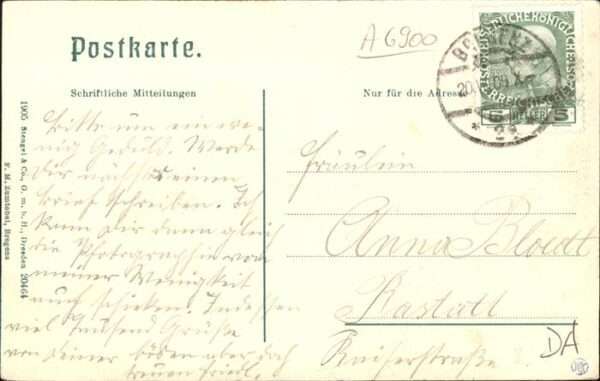 Postkarte.
A 6900
Schriftliche Mitteilungen
Nur für die Adresse
BREGENZ
20. 09
* 2a
5 HELLER 5
Bitte um ein we-
nig Geduld. Werde
Dir nächstens einen
Brief schreiben. Ich
kann Dir dann gleich
die Photographie von
meiner Wenigkeit
auch schicken. Indessen
viel tausend Grüße
von Deiner bösen aber doch
treuen Friedl.
Fräulein
Anna Bloedt
Rastatt
Kaiserstraße
DA
1905 Stengel & Co., G. m. b. H., Dresden 20464
F. M. Zumtobel, Bregenz